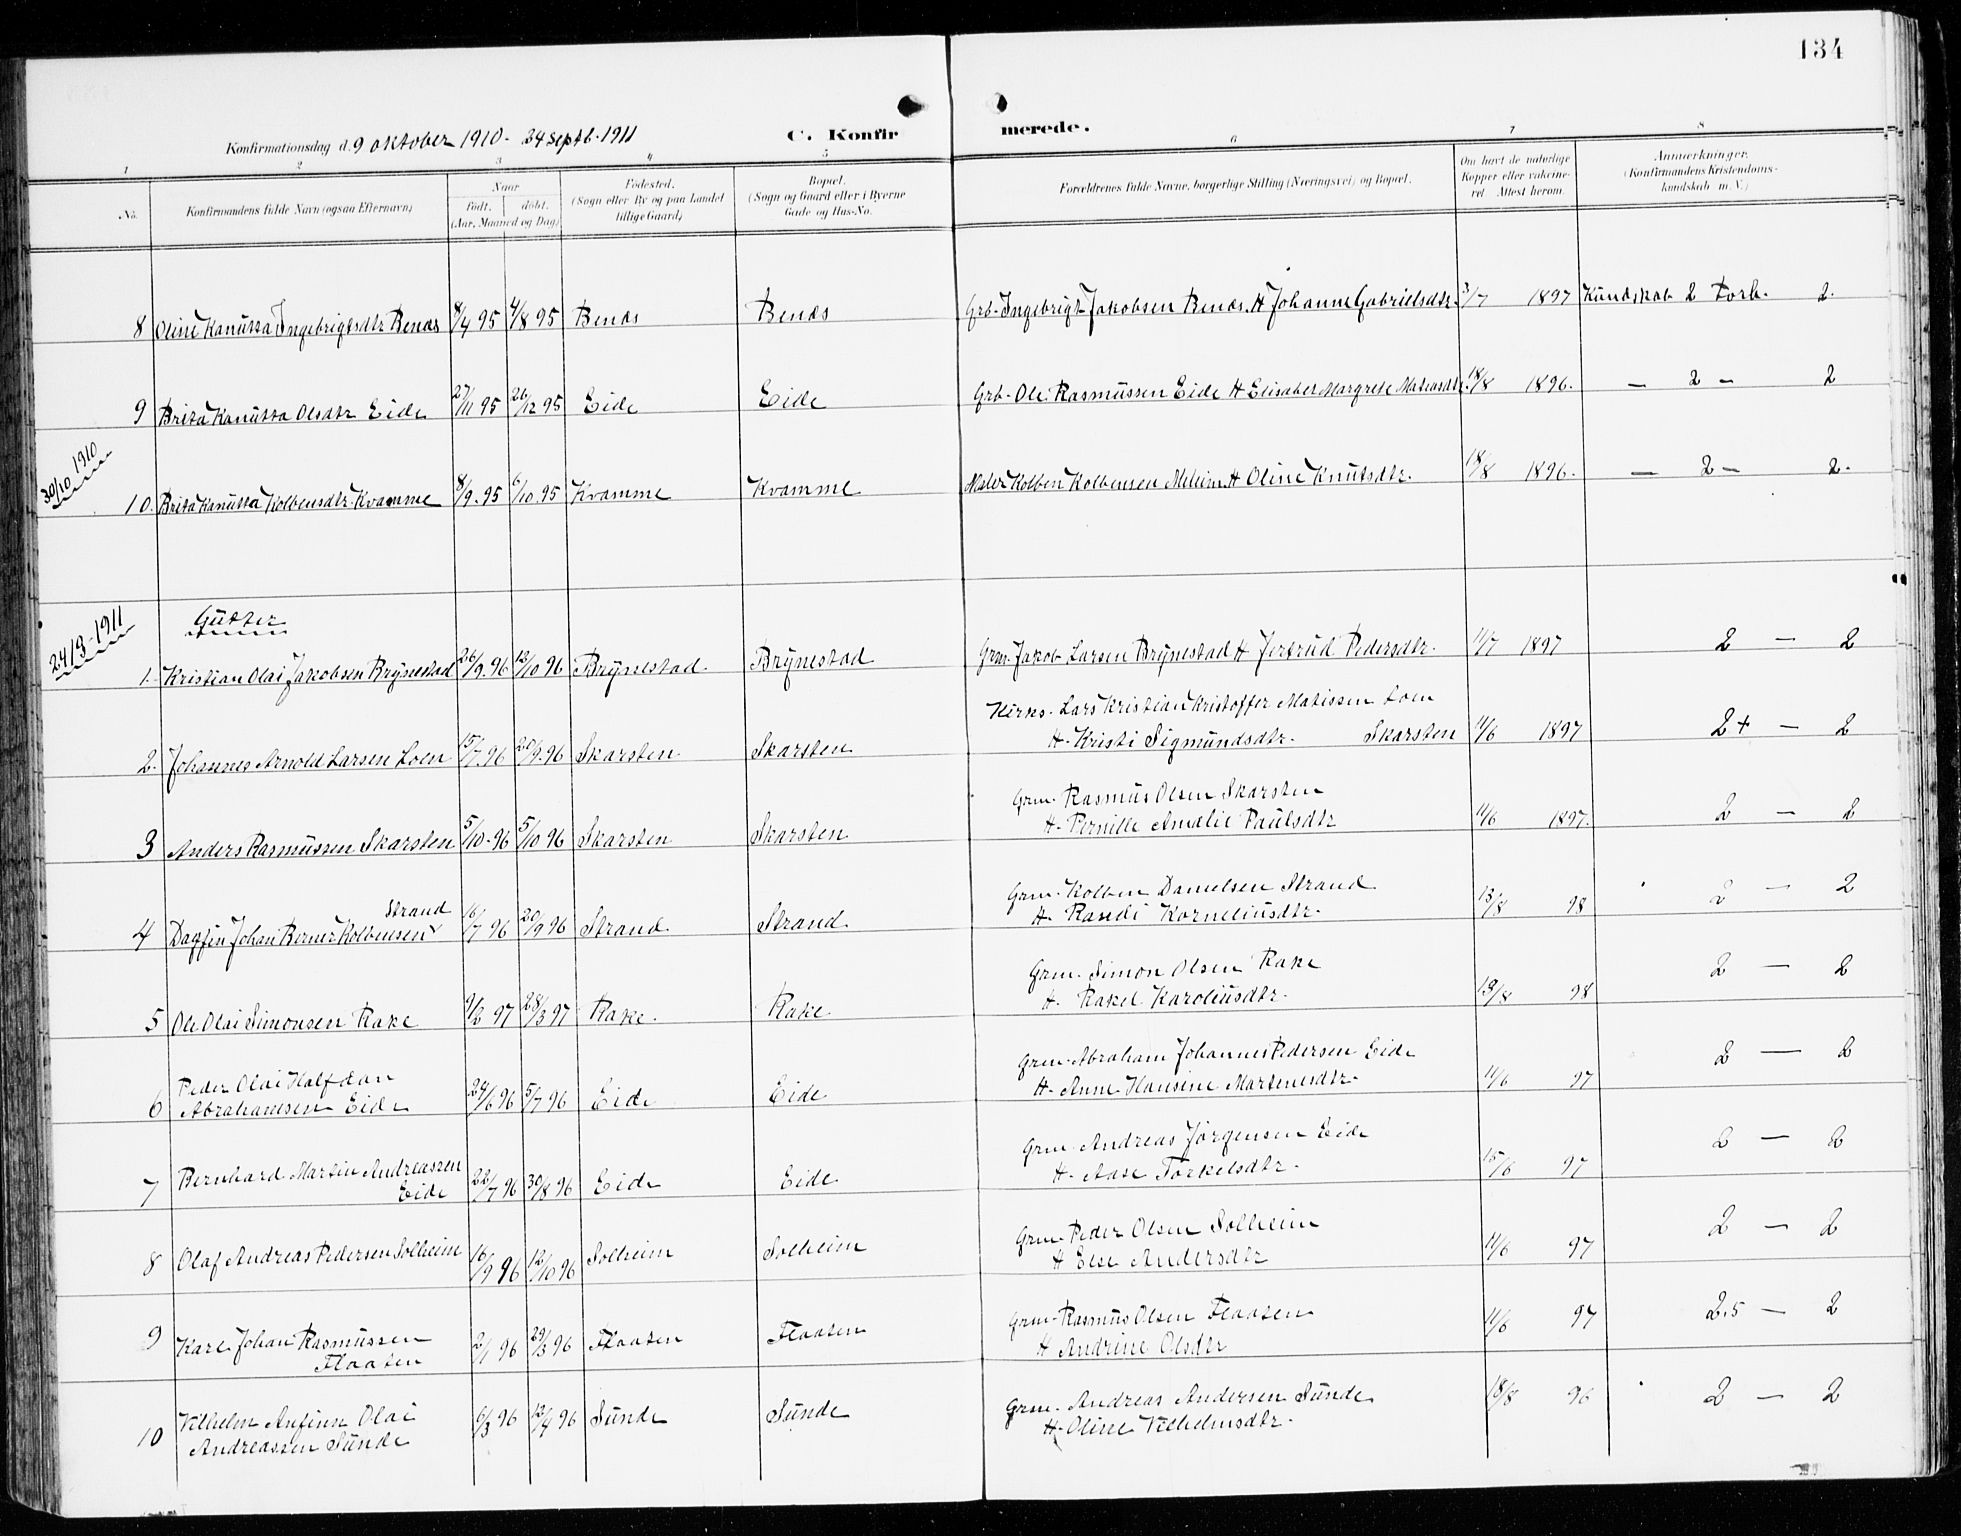 134
Konfirmationsdag d. 9 oktober 1910 - 24 septb. 1911
C. Konfirmerede.
1 2 3 4 5 6 7 8
No.
Konfirmandens fulde Navn (ogsaa Efternavn)
Naar
født. døbt.
(Aar, Maaned og Dag)
Fødested.
(Sogn eller By og paa Landet
tillige Gaard)
Bopæl.
(Sogn og Gaard eller i Byerne
Gade og Hus-No.
Forældrenes fulde Navne, borgerlige Stilling (Næringsvei) og Bopæl.
Om havt de naturlige
Kopper eller vakcine-
ret Attest herom.
Anmærkninger.
(Konfirmandens Kristendoms-
kundskab m. V.)
8 Oline Kanutta Ingebrigtsdtr Benæs 8/4 95 4/8 95 Benæs Benæs Grb. Ingebrigt Jakobsen Benæs. H Johanne Gabrielsdtr. 3/7 1897 Kundskab 2 Forh. 2.
9 Brita Kanutta Olsdtr Eide 27/11 95 26/12 95 Eide Eide Grb. Ole Rasmussen Eide H Elisabet Margrete Matiasdtr. 18/8 1896. — 2 — 2
30/10 1910
10. Brita Kanutta Kolbensdtr Kvamme 8/9. 95 6/10 95 Kvamme Kvamme Maler Kolben Kolbensen Melheim H Oline Knutsdtr. 18/8 1896. — 2 — 2.
24/9-1911
Gutter
1. Kristian Olai Jakobsen Brynestad 26/9. 96 12/10 96 Brynestad. Brynestad Grm. Jakob Larsen Brynestad H Jertrud Pedersdtr. 11/7 1897 2 — 2
2. Johannes Arnold Larsen Loen 15/7. 96 20/9. 96 Skarsten Skarsten Kirks. Lars Kristian Kristoffer Matissen Loen
H. Kristi Sigmundsdtr. Skarsten 11/6 1897 2+ — 2
3 Anders Rasmussen Skarsten 5/10. 96 5/10 96 Skarsten Skarsten Grm. Rasmus Olsen Skarsten
H. Pernille Amalie Paulsdtr 11/6 1897. 2 — 2
4 Dagfin Johan Berner Kolbensen Strand 16/7 96 20/9 96 Strand Strand Grm. Kolben Danielsen Strand
H. Randi Korneliusdtr. 13/8 98 2 — 2
5 Ole Olai Simonsen Rake 9/2 97 28/3 97 Rake. Rake Grm. Simon Olsen Rake
H. Rakel Karoliusdtr. 19/8 98 2 — 2
6 Peder Olai Halfdan
Abrahamsen Eide 24/6 96 5/7 96 Eide Eide Grm. Abraham Johannes Pedersen Eide
H. Anne Hansine Martenesdtr. 11/6 97 2 — 2
7 Bernhard Martin Andreassen
Eide 22/7 96 30/8 96 Eide Eide Grm. Andreas Jørgensen Eide
H. Aase Torkelsdtr. 15/6 97 2 — 2
8 Olaf Andreas Pedersen Solheim 16/9 96 12/10 96 Solheim Solheim Grm. Peder Olsen Solheim
H Else Andersdtr 11/6 97 2 — 2
9 Karl Johan Rasmussen
Flaaten 2/1 96 29/3 96 Flaaten Flaaten Grm. Rasmus Olsen Flaaten
H Andrine Olsdtr 11/6 97 2.5 — 2
10 Vilhelm Anfinn Olai
Andreassen Sunde 6/3 96 12/4 96 Sunde Sunde Grm. Andreas Andersen Sunde
H. Oline Vilhelmsdtr. 18/8 96 2 — 2